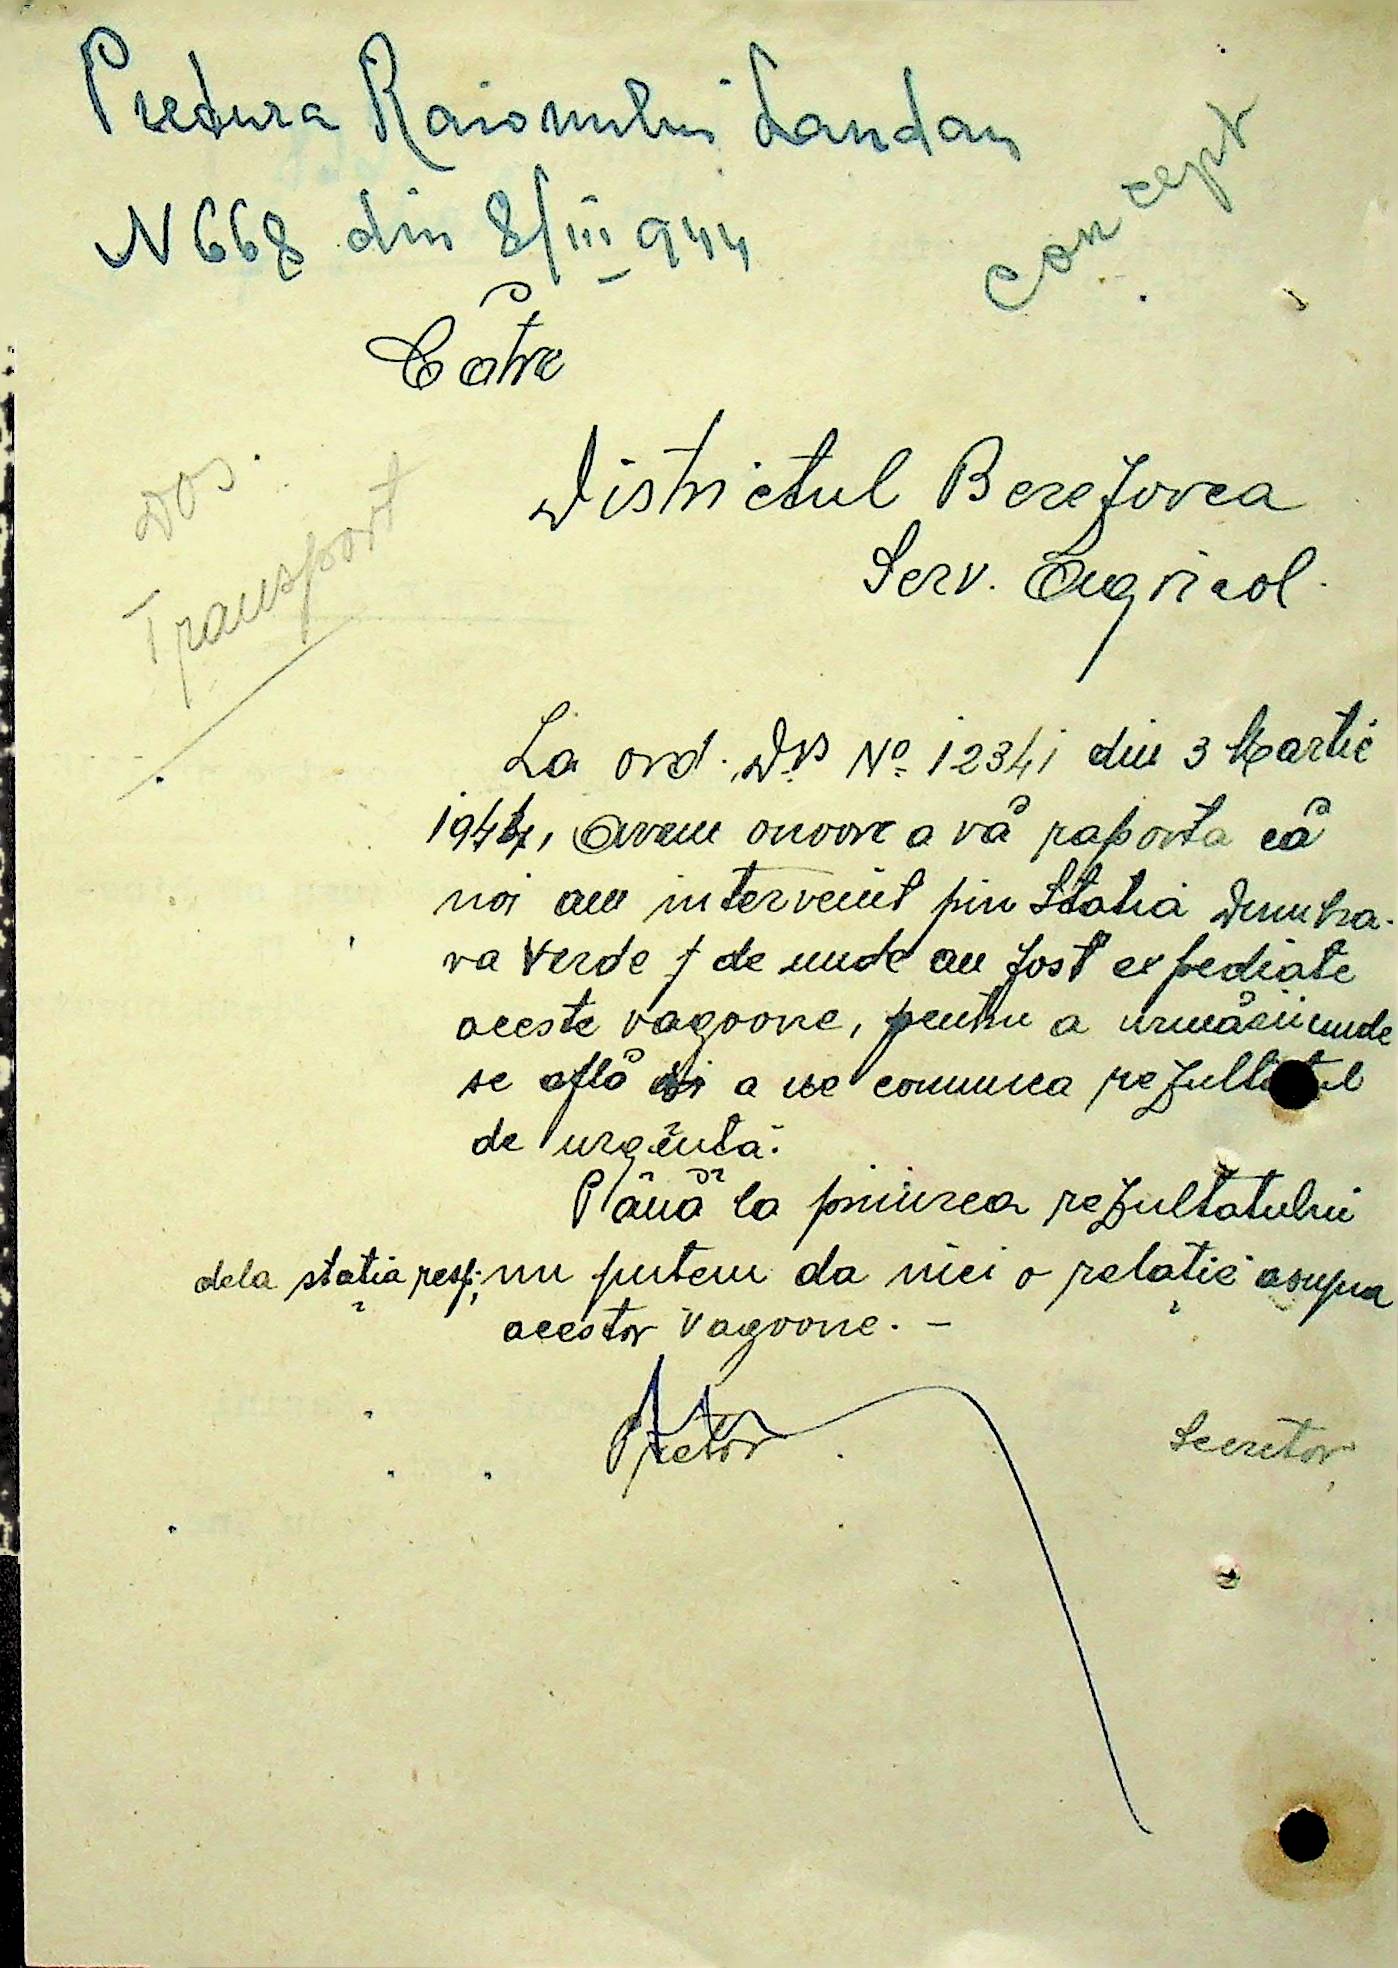 Pretura Raionului Landau
concept
N 668 din 8/III 944
Către
Districtul Berezovca
Serv. Agricol.
Dos.
Transport
La ord. Dvs No. 12341 din 3 Martie
1944, Avem onoare a vă raporta că
noi am intervenit prin Statia Dumbra-
va Verde, de unde au fost expediate
aceste vagoane, pentru a urmări unde
se află și a ne comunica rezultatul
de urgență.
Până la primirea rezultatului
dela stația resp; nu putem da nici o relație asupra
acestor vagoane. -
Pretor
Secretar